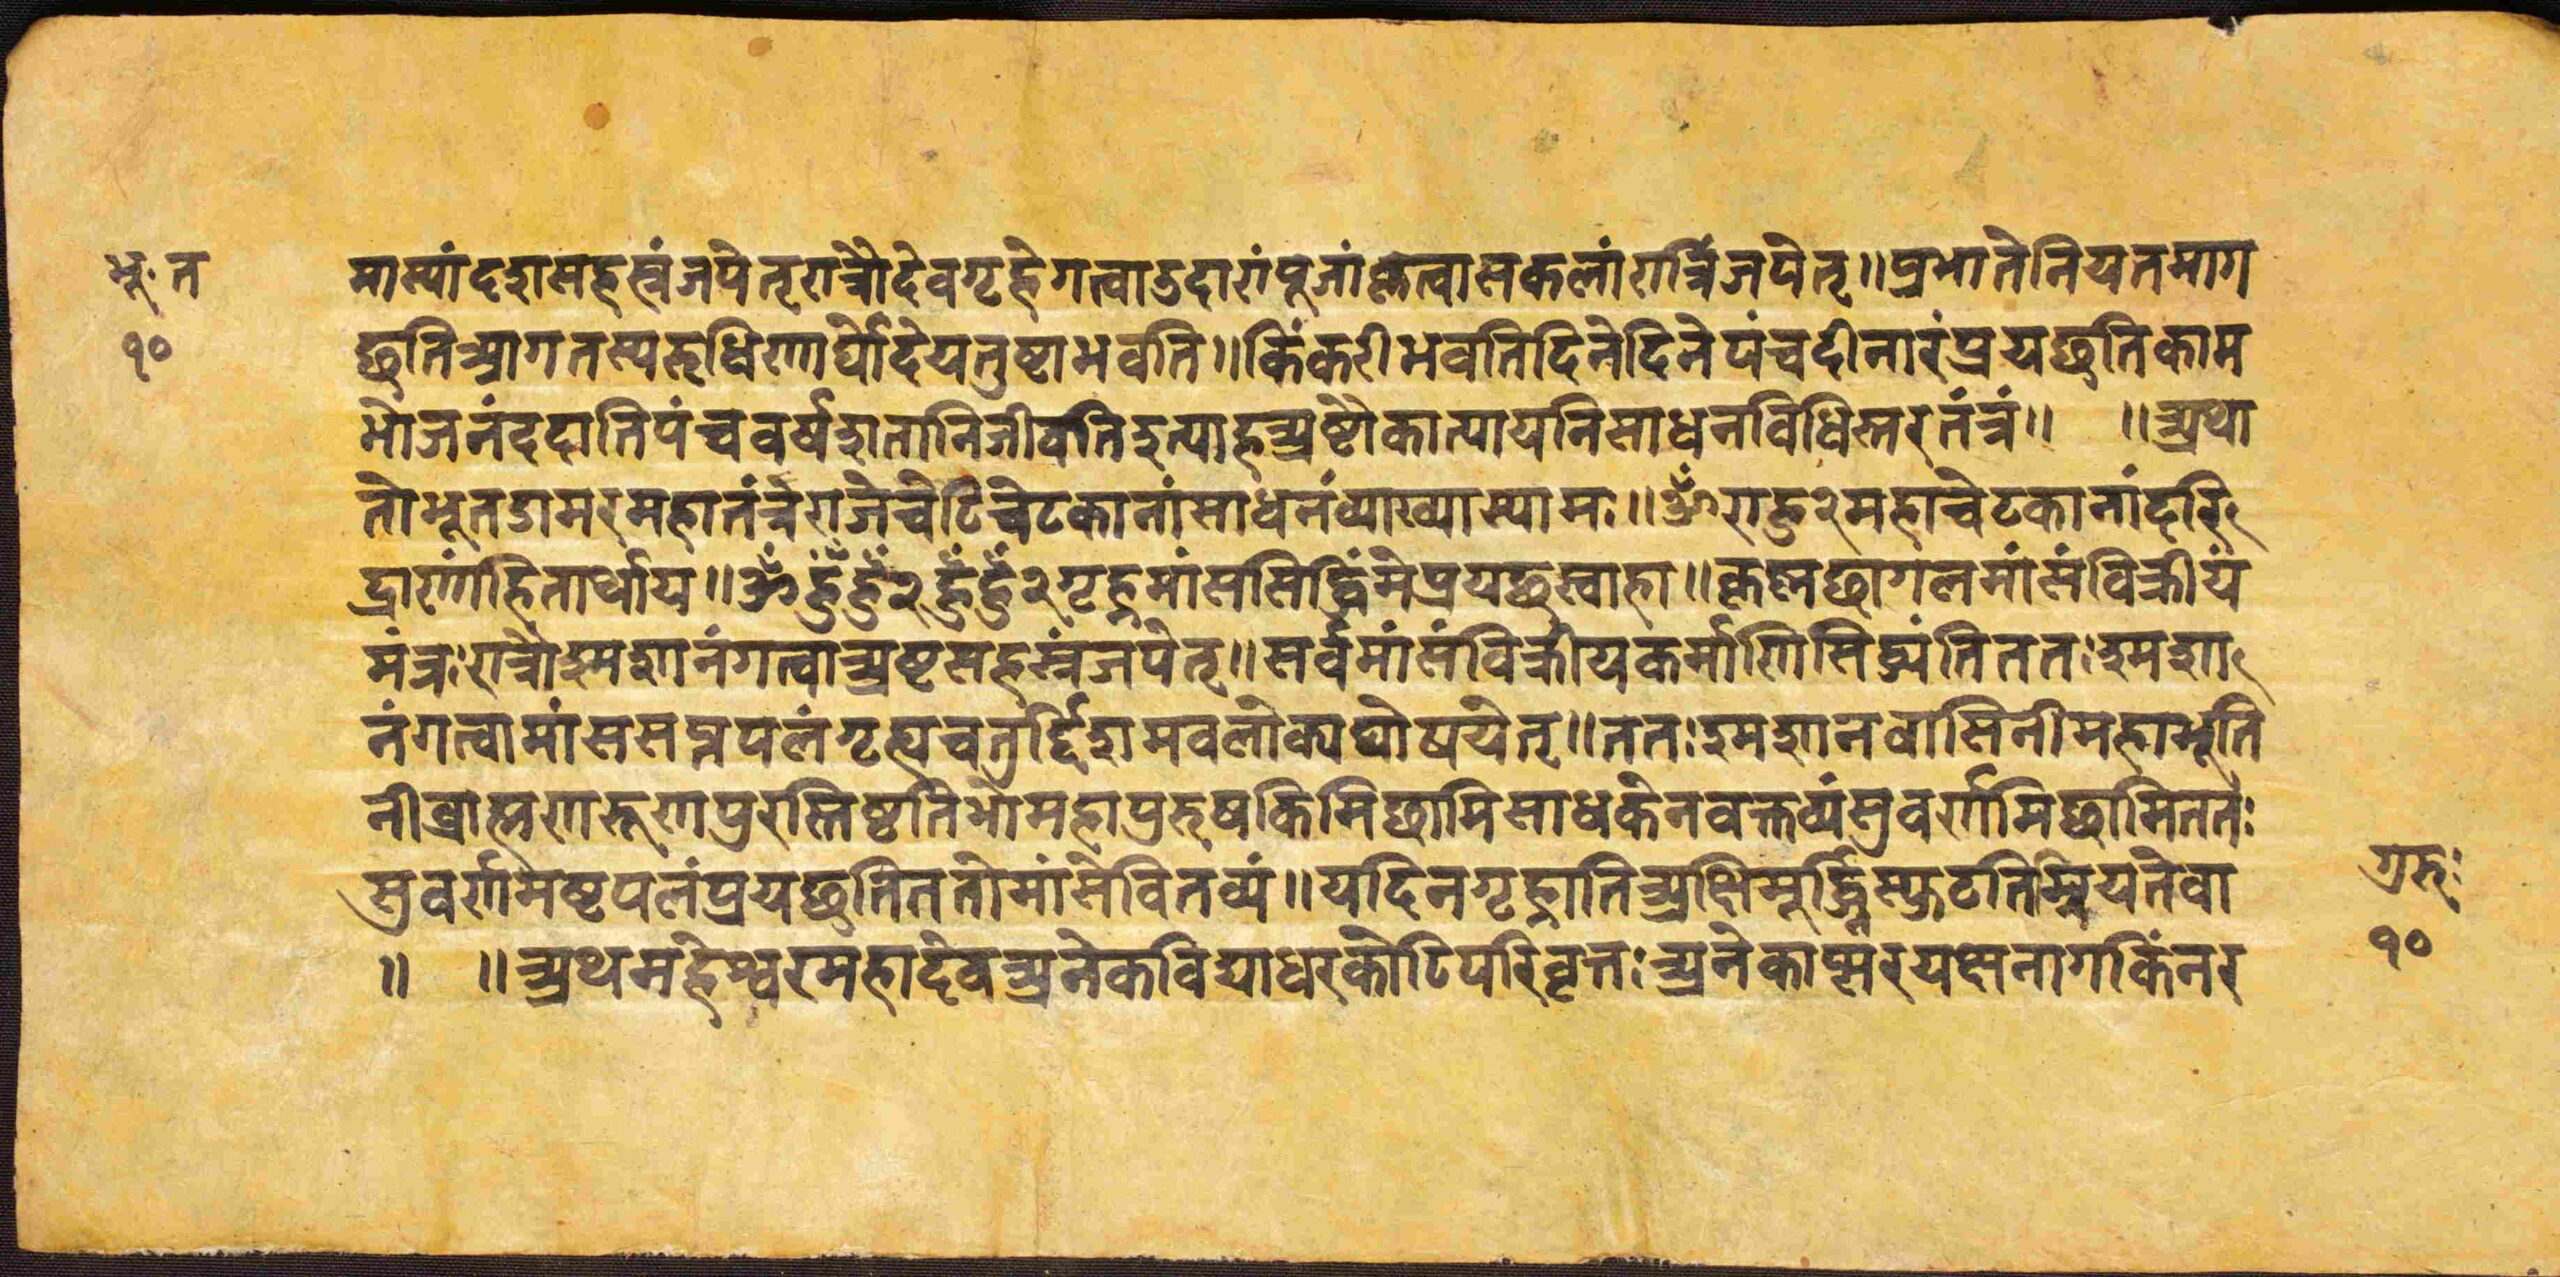 भू॰ त
१०
मास्यांदशसहस्रंजपेत्रात्रौदेवगृहेगत्वाउदारांपूजांकृत्वासकलांरात्रिंजपेत्॥प्रभातेनियतमाग
छतिआगतस्यरूधिरेणार्घोदेयतुष्टाभवति॥किंकरीभवतिदिनेदिनेपंचदीनारंप्रयछतिकाम
भोजनंददातिपंचवर्षशतानिजीवतिइत्याहअष्टौकात्यायनिसाधनविधिस्तरतंत्रं॥ ॥अथा
तोभूतडामरमहातंत्रराजेचेटिचेटकानांसाधनंव्याख्यास्यामः॥ॐराहु२महाचेटकानांदरि
द्राणांहितार्थाय॥ॐहुँहुँ२हुँहुँ२गृह्णमांससिद्धिंमेप्रयछस्वाहा॥कृष्णछागलमांसंविक्रीयं
मंत्रःरात्रौश्मशानंगत्वाअष्टसहस्रंजपेत्॥सर्वमांसंविक्रीयकर्माणिसिद्ध्यंतिततःश्मशा
नंगत्वामांससप्तपलंगृह्यचतुर्द्दिशमवलोक्यघोषयेत्॥ततःश्मशानवासिनीमहाभूति
नीब्राह्मणरूपणपुरस्तिष्ठतिभोमहापुरुषकिमिछामिसाधकेनवक्तव्यंसुवर्णमिछामिततः
सुवर्णमष्टपलंप्रयछतिततोमांसेवितव्यं॥यदिनगृह्णातिअक्षिमूर्द्ध्निस्फुटतिम्रियतेवा
॥ ॥अथमहेश्वरमहादेवअनेकविद्याधरकोटिपरिवृत्तःअनेकाप्सरयक्षनागकिंनर
गुरुः
१०